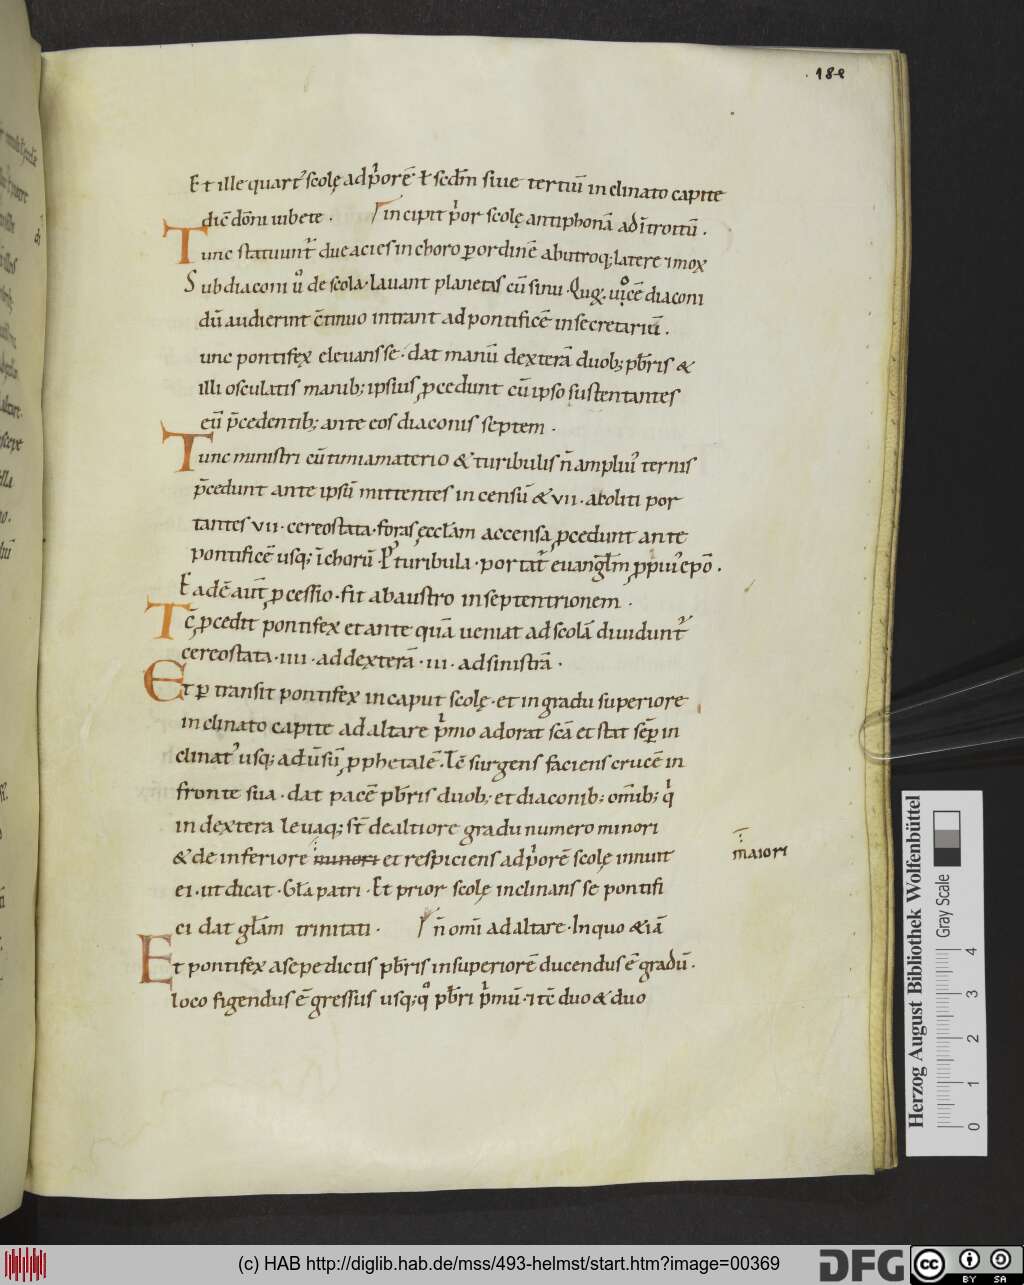 182
Et ille quart᷒ scolę ad p̍orē ł scd̄m siue tertiū inclinato capite
dic̄ dōni iubete . Incipit p̍or scolę antiphonā ad ītroitū .
Tunc statuunt᷒ due acies in choro ꝑ ordinē ab utroq; latere ⁊ mox
Subdiaconi u̾ de scola · lauant planetas cū sinu · diaconi
dū audierint c̄tinuo intrant ad pontificē in secretariū .
unc pontifex eleuans se · dat manū dexterā duob; pb̄ris &
illi osculatis manib; ipsius ꝓcedunt cū ipso sustentantes
eū p̄cedentib; ante eos diaconis septem .
Tunc ministri cū timiamaterio & turibulis n̄ ampliu᷒ ternis
p̄cedunt ante ipsū mittentes incensū & VII · acoliti por
tantes VII · cereostata · foras ęccl̄am accensa ꝓcedunt ante
pontificē usq; ī chorū · P᷒ turibula · portat᷒ euangl̄m epō .
Eadē aut̄ ꝓcessio · fit ab austro in septentrionem .
Tc̄ ꝓcedit pontifex et ante quā ueniat ad scolā diuidunt᷒
cereostata · IIII · ad dexterā · III · ad sinistrā .
Et ꝑtransit pontifex in caput scolę · et in gradu superiore
inclinato capite ad altare p̍mo adorat sc̄a et stat sēꝑ in
clinat᷒ usq; ad ūsū ꝓphetalē · surgens faciens crucē in
fronte sua · dat pacē pb̄ris duob; et diaconib; omīb; q̍
in dextera leuaq; st̄ de altiore gradu numero minori
& de inferiore minori et respiciens ad p̍orē scolę innuit
maiori
ei · ut dicat · Gl̄a patri · Et prior scolę inclinans se pontifi
ci dat gl̄am trinitati · n̄ omī ad altare · In quo & iā
Et pontifex a sepedictis pb̄ris in superiorē ducendus ē gradū .
loco figendus ē gressus usq; q̊ pb̄ri p̍mū · ⁊ itē duo & duo
Herzog August Bibliothek Wolfenbüttel
Gray Scale
0 1 2 3 4
(c) HAB http://diglib.hab.de/mss/493-helmst/start.htm?image=00369
DFG
cc BY SA